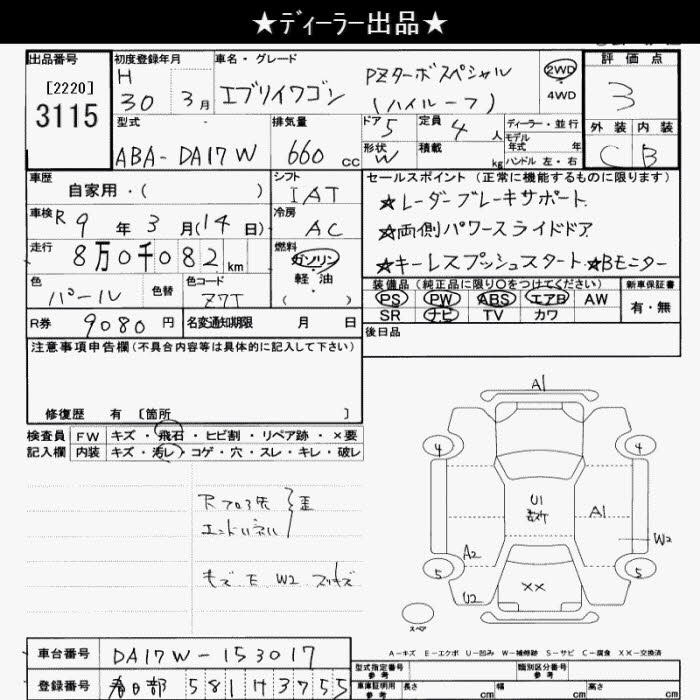 ★ディーラー出品★
出品番号
[2220]
3115
初度登録年月
H 30 3月
車名・グレード
エブリイワゴン
PZターボスペシャル
(ハイルーフ)
2WD
4WD
評価点
3
外装 内装
C B
型式
ABA-DA17W
排気量
660 cc
ドア 5
定員 4 人
形状 W
積載 kg
ディーラー・並行
モデル年式 年
ハンドル 左・右
車歴
自家用・( )
シフト
IAT
セールスポイント (正常に機能するものに限ります)
☆レーダーブレーキサポート
☆両側パワースライドドア
☆キーレスプッシュスタート ☆Bモニター
車検 R 9 年 3 月(14 日)
冷房
AC
走行 8万0千082 km
燃料
ガソリン
軽・油
( )
色
パール
色替
色コード
Z7T
装備品 (純正品に限り○をつけてください)
PS PW ABS エアB AW
SR ナビ TV カワ
新車保証書
有・無
R券 9080 円
名変通知期限 月 日
後日品
注意事項申告欄(不具合内容等は具体的に記入して下さい)
修復歴 有 [箇所 ]
検査員
記入欄
FW キズ・飛石・ヒビ割・リペア跡・×要
内装 キズ・汚レ・コゲ・穴・スレ・キレ・破レ
エンドパネル
歪
W2
A1
4 4
U1
A1
W2
A2
5 5
U2
XX
スペア
A-キズ E-エクボ U-凹み W-補修跡 S-サビ C-腐食 XX-交換済
車台番号 DA17W-153017
登録番号 春日部 581 サ 3755
型式指定番号 参考
類別区分番号 参考
車庫証明用 参考
長さ cm 幅 cm 高さ cm